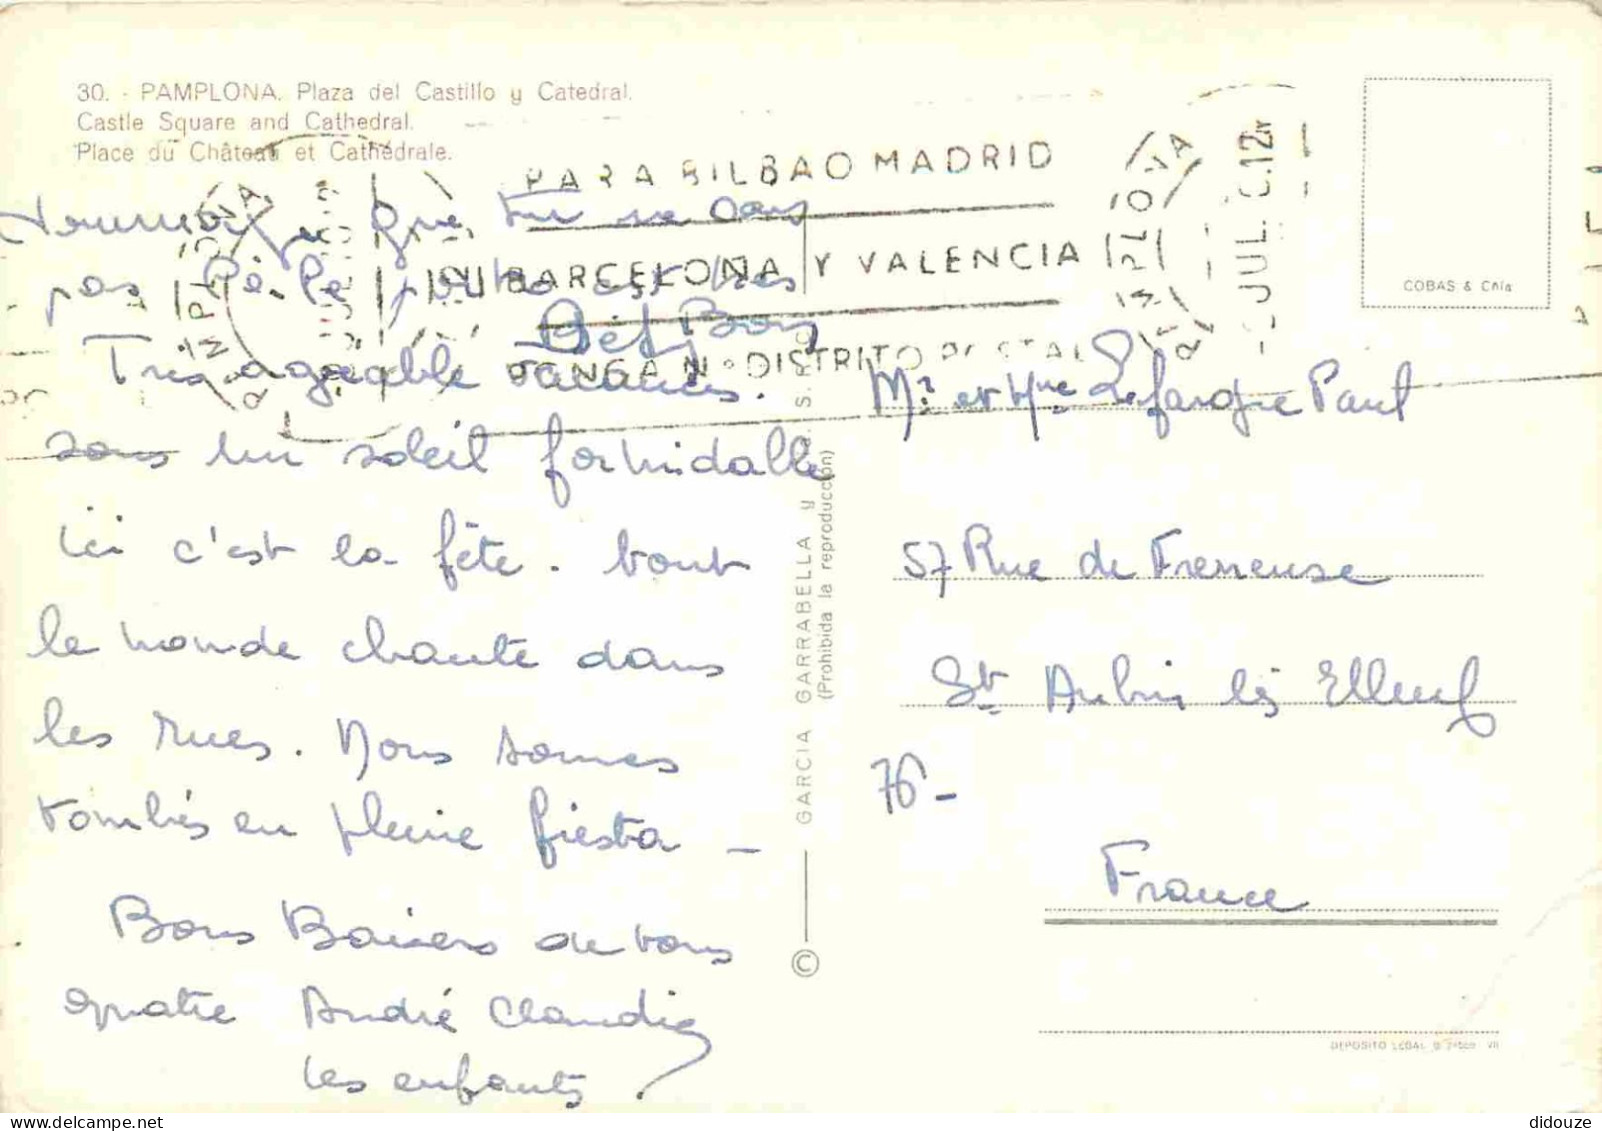 30. - PAMPLONA. Plaza del Castillo y Catedral.
Castle Square and Cathedral.
Place du Château et Cathédrale.
PARA BILBAO MADRID
BARCELONA Y VALENCIA
PONGA Nº DISTRITO POSTAL
PAMPLONA
PAMPLONA
JUL.
12
COBAS & Cñía
que tu ne
pas Pé-Pé
Très agréable vacances.
sous un soleil formidable
ici c'est la fête. tout
le monde chante dans
les rues. Nous sommes
tombés en pleine fiesta -
Bons Baisers de vous
quatre André Claudie
les enfants.
GARCIA GARRABELLA y
(Prohibida la reproducción)
©
Mr. et Mme Lefargue Paul
57 Rue de Freneuse
St Aubin lès Elbeuf
76 -
France
DEPOSITO LEGAL B. VII
didouze